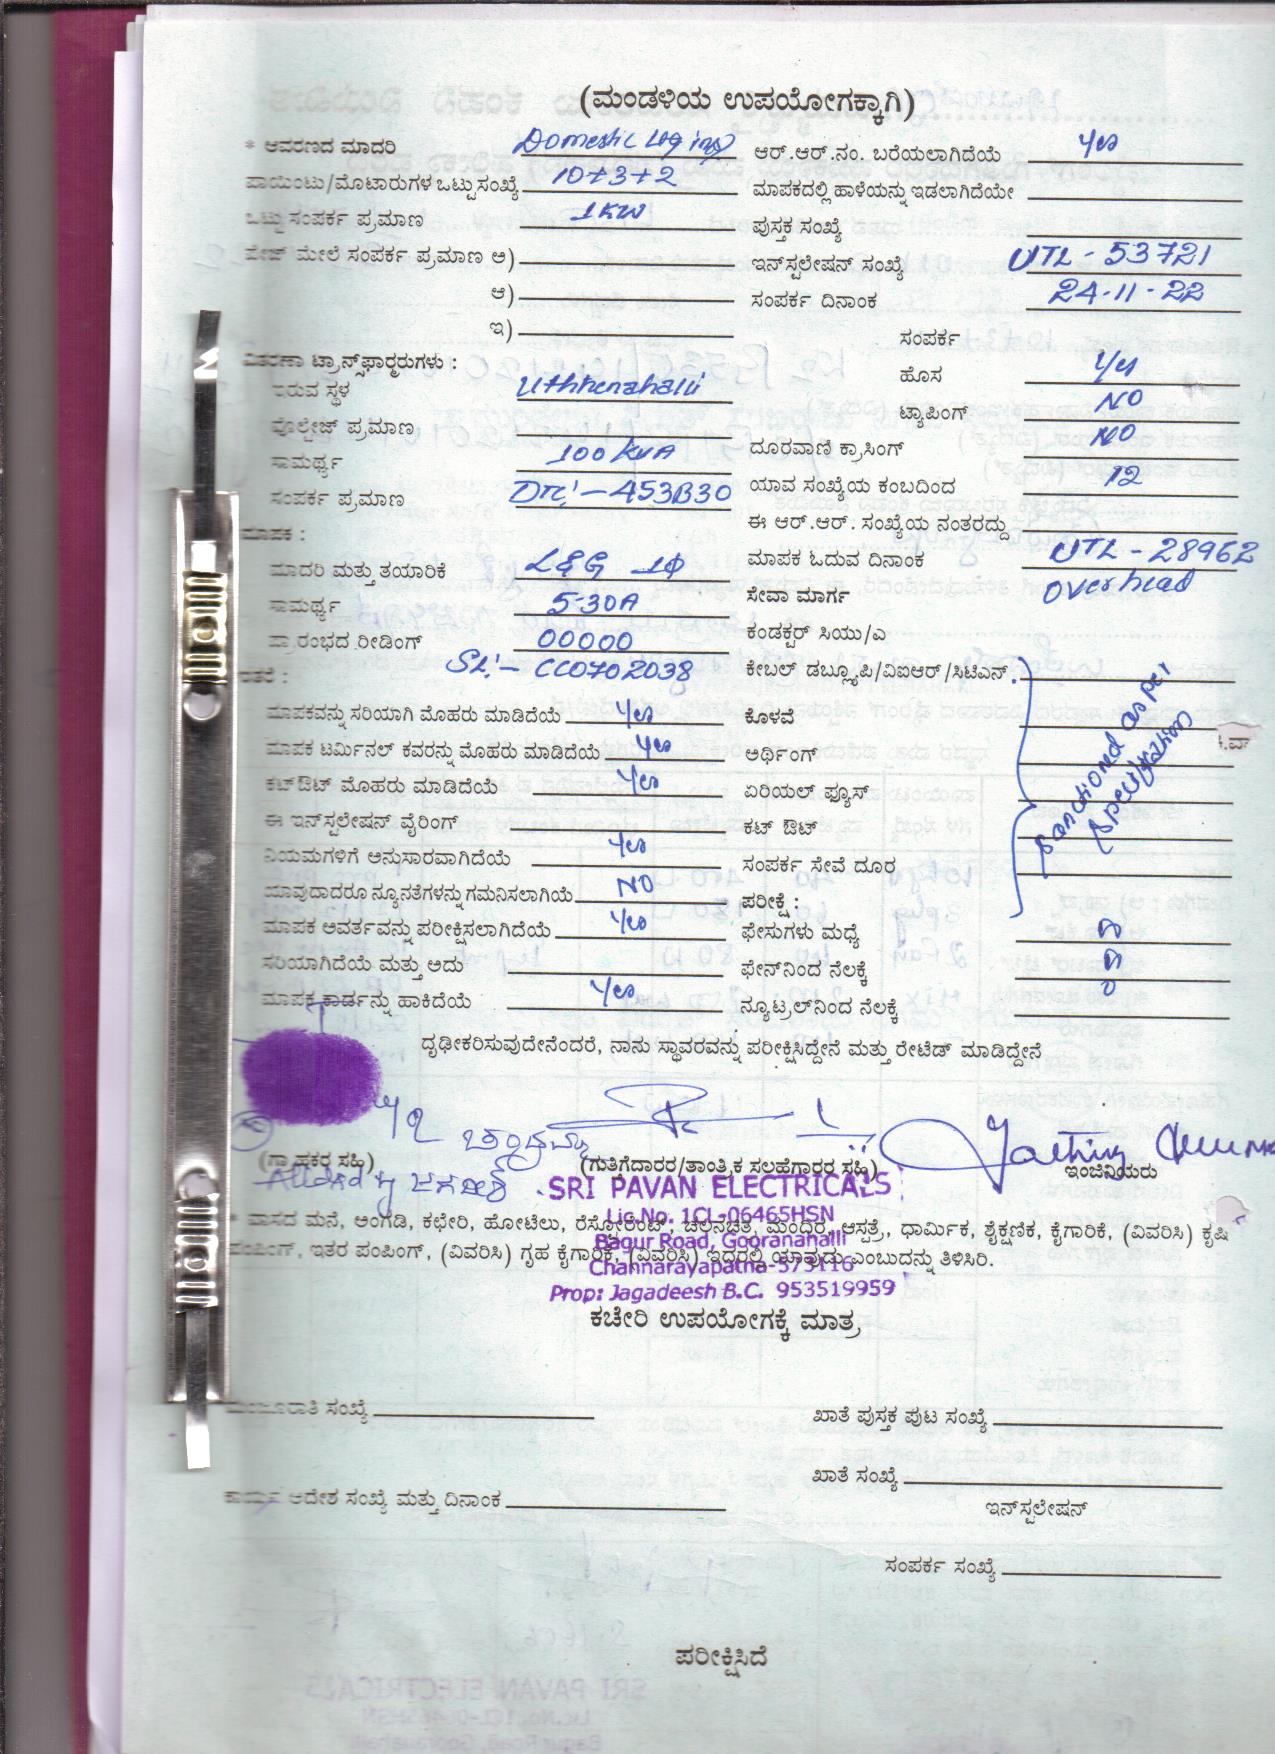 (ಮಂಡಳಿಯ ಉಪಯೋಗಕ್ಕಾಗಿ)
* ಆವರಣದ ಮಾದರಿ Domestic Lighting ಆರ್.ಆರ್.ನಂ. ಬರೆಯಲಾಗಿದೆಯೆ Yes
ಪಾಯಿಂಟು/ಮೊಟಾರುಗಳ ಒಟ್ಟು ಸಂಖ್ಯೆ 10+3+2 ಮಾಪಕದಲ್ಲಿ ಹಾಳೆಯನ್ನು ಇಡಲಾಗಿದೆಯೇ
ಒಟ್ಟು ಸಂಪರ್ಕ ಪ್ರಮಾಣ 1KW ಪುಸ್ತಕ ಸಂಖ್ಯೆ
ಪೇಜ್ ಮೇಲೆ ಸಂಪರ್ಕ ಪ್ರಮಾಣ ಅ) ಇನ್‌ಸ್ಟಲೇಷನ್ ಸಂಖ್ಯೆ UTL - 53721
ಆ) ಸಂಪರ್ಕ ದಿನಾಂಕ 24-11-22
ಇ) ಸಂಪರ್ಕ
ವಿತರಣಾ ಟ್ರಾನ್ಸ್‌ಫಾರ್‍ಮರುಗಳು : ಹೊಸ Yes
ಇರುವ ಸ್ಥಳ Uthhenahalli ಟ್ಯಾಪಿಂಗ್ NO
ವೊಲ್ಟೇಜ್ ಪ್ರಮಾಣ ದೂರವಾಣಿ ಕ್ರಾಸಿಂಗ್ NO
ಸಾಮರ್ಥ್ಯ 100 KVA ಯಾವ ಸಂಖ್ಯೆಯ ಕಂಬದಿಂದ 12
ಸಂಪರ್ಕ ಪ್ರಮಾಣ DTC:-453B30 ಈ ಆರ್.ಆರ್. ಸಂಖ್ಯೆಯ ನಂತರದ್ದು
ಮಾಪಕ : ಮಾಪಕ ಓದುವ ದಿನಾಂಕ UTL - 28962
ಮಾದರಿ ಮತ್ತು ತಯಾರಿಕೆ L&G 1Φ ಸೇವಾ ಮಾರ್ಗ overhead
ಸಾಮರ್ಥ್ಯ 5-30A ಕಂಡಕ್ಟರ್ ಸಿಯು/ಎ
ಪ್ರಾರಂಭದ ರೀಡಿಂಗ್ 00000
SL:- CC0702038 ಕೇಬಲ್ ಡಬ್ಲ್ಯೂಪಿ/ವಿಐಆರ್/ಸಿಟಿಎನ್.
ಇತರೆ :
ಮಾಪಕವನ್ನು ಸರಿಯಾಗಿ ಮೊಹರು ಮಾಡಿದೆಯೆ Yes ಕೊಳವೆ
ಮಾಪಕ ಟರ್ಮಿನಲ್ ಕವರನ್ನು ಮೊಹರು ಮಾಡಿದೆಯೆ Yes ಅರ್ಥಿಂಗ್
ಕಟ್‌ಔಟ್ ಮೊಹರು ಮಾಡಿದೆಯೆ Yes ಏರಿಯಲ್ ಫ್ಯೂಸ್
ಈ ಇನ್‌ಸ್ಟಲೇಷನ್ ವೈರಿಂಗ್ ಕಟ್ ಔಟ್
sanctioned as per
specification
ನಿಯಮಗಳಿಗೆ ಅನುಸಾರವಾಗಿದೆಯೆ Yes ಸಂಪರ್ಕ ಸೇವೆ ದೂರ
ಯಾವುದಾದರೂ ನ್ಯೂನತೆಗಳನ್ನು ಗಮನಿಸಲಾಗಿಯೆ NO ಪರೀಕ್ಷೆ :
ಮಾಪಕ ಅವರ್ತವನ್ನು ಪರೀಕ್ಷಿಸಲಾಗಿದೆಯೆ Yes ಫೇಸುಗಳು ಮಧ್ಯೆ
ಸರಿಯಾಗಿದೆಯೆ ಮತ್ತು ಅದು ಫೇಸ್‌ನಿಂದ ನೆಲಕ್ಕೆ
ಮಾಪಕ ಕಾರ್ಡನ್ನು ಹಾಕಿದೆಯೆ Yes ನ್ಯೂಟ್ರಲ್‌ನಿಂದ ನೆಲಕ್ಕೆ
ದೃಢೀಕರಿಸುವುದೇನೆಂದರೆ, ನಾನು ಸ್ಥಾವರವನ್ನು ಪರೀಕ್ಷಿಸಿದ್ದೇನೆ ಮತ್ತು ರೇಟೆಡ್ ಮಾಡಿದ್ದೇನೆ
(ಗ್ರಾಹಕರ ಸಹಿ) (ಗುತ್ತಿಗೆದಾರರ/ತಾಂತ್ರಿಕ ಸಲಹೆಗಾರರ ಸಹಿ) ಇಂಜಿನಿಯರು
SRI PAVAN ELECTRICALS
Lic.No. 1CL-06465HSN
* ವಾಸದ ಮನೆ, ಅಂಗಡಿ, ಕಛೇರಿ, ಹೋಟೆಲು, ರೆಸ್ಟೋರೆಂಟ್, ಚಲನಚಿತ್ರ, ಮಂದಿರ, ಆಸ್ಪತ್ರೆ, ಧಾರ್ಮಿಕ, ಶೈಕ್ಷಣಿಕ, ಕೈಗಾರಿಕೆ, (ವಿವರಿಸಿ) ಕೃಷಿ
Bagur Road, Gooranahalli
ಪಂಪಿಂಗ್, ಇತರ ಪಂಪಿಂಗ್, (ವಿವರಿಸಿ) ಗೃಹ ಕೈಗಾರಿಕೆ, (ವಿವರಿಸಿ) ಇದರಲ್ಲಿ ಯಾವುದು ಎಂಬುದನ್ನು ತಿಳಿಸಿರಿ.
Channarayapatna-573116
Prop: Jagadeesh B.C. 953519959
ಕಚೇರಿ ಉಪಯೋಗಕ್ಕೆ ಮಾತ್ರ
ಮಂಜೂರಾತಿ ಸಂಖ್ಯೆ ಖಾತೆ ಪುಸ್ತಕ ಪುಟ ಸಂಖ್ಯೆ
ಖಾತೆ ಸಂಖ್ಯೆ
ಕಾರ್ಯ ಆದೇಶ ಸಂಖ್ಯೆ ಮತ್ತು ದಿನಾಂಕ ಇನ್‌ಸ್ಟಲೇಷನ್
ಸಂಪರ್ಕ ಸಂಖ್ಯೆ
ಪರೀಕ್ಷಿಸಿದೆ